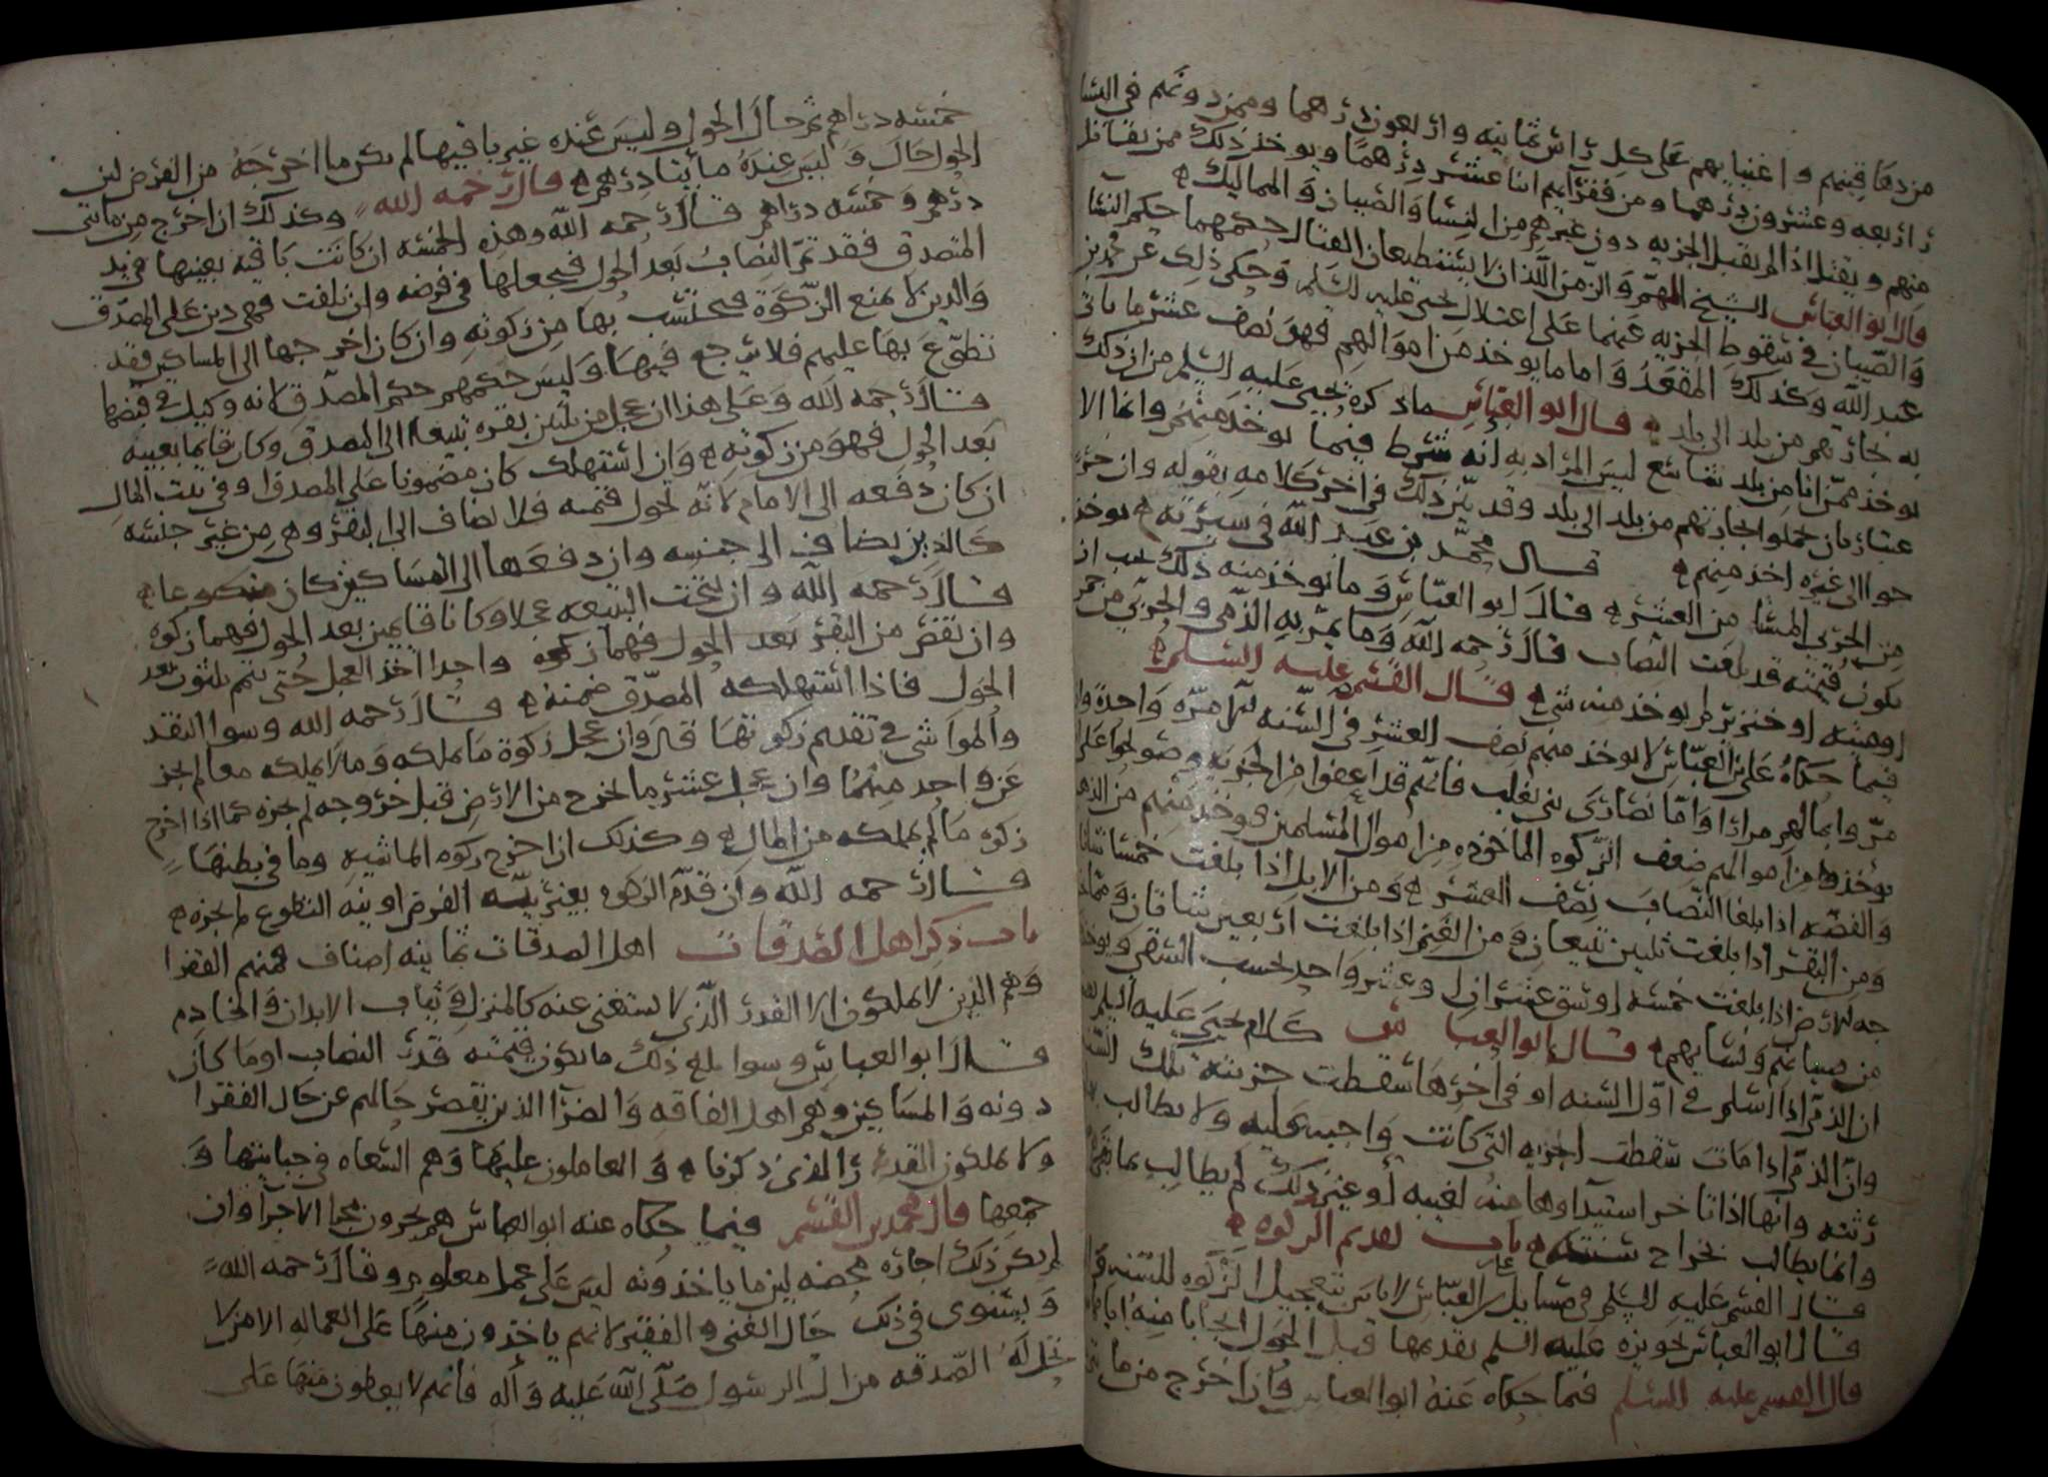 من دهاقينهم واغنيايهم على كل راس ثمانيه واربعون درهما وممن دونهم في
راربعه وعشرون درهما ومن فقرايهم اثنا عشر درهما ويوخذ ذلك ممن يقاتل
منهم ويقتل اذا لم يقبل الجزيه دون غيرهم من النسا والصبيان والمماليك
قال ابو العباس الشيخ الهم والزمن اللذان لا يستطيعان القتال حكمهما حكم النسا
والصبيان في سقوط الجزيه عنهما على اعتلال يحيى عليه السلم وحكى ذلك عن محمد بن
عبد الله وكذلك المقعد واما ما يوخذ من اموالهم فهو نصف عشر ما ياتي
به تجارهم من بلد الى بلد قال ابو العباس ماذكره يحيى عليه السلم من ان ذلك
يوخذ ممن اتا من بلد شاسع ليس المراد به انه شرط فيما يوخذ منهم وانما الا
عتبار بان يحملوا تجارتهم من بلد الى بلد وقد بين ذلك في اخر كلامه بقوله وان
حوا الى غيره اخذ منهم قال محمد بن عبد الله في سيرته يوخذ
من الحربي المستا من العشر قال ابو العباس وما يوخذ منه ذلك يجب ان
يكون قيمته قد بلغت النصاب قال رحمه الله وما يمر به الذمي والحربي من خمر
اوميته او خنزير لم يوخذ منه شي قال القسم عليه السلم
فيما حكاه على بن العباس لا يوخذ منهم نصف العشر في السنه الا مره واحدة وان
مروا بمالهم مرارا واما نصارى بني تغلب فانهم قد اعفوا من الجزيه وصولحوا على ان
يوخذ من اموالهم ضعف الزكوه الماخوذه من اموال المسلمين فيوخذ منهم من الذهب
والفضه اذا بلغا النصاب نصف العشر ومن الابل اذا بلغت خمسا شاتان
ومن البقر اذا بلغت ثلثين تبيعان ومن الغنم اذا بلغت اربعين شاتان ومما
جه الارض اذا بلغت خمسه اوسق عشران او عشر واحد بحسب السقي ويوخذ
من صبيانهم ونسايهم قال ابو العباس كلام يحيى عليه السلم
ان الذمي اذا اسلم في اول السنه او في اخرها سقطت جزيته تلك السنه
وان الذمي اذا مات سقطت الجزيه التي كانت واجبه عليه ولا يطالب بها
رثته وانها اذا تاخر استيداوها منه لغيبه او غير ذلك لم يطالب بما
وانما يطالب بخراج سنته باب تقديم الزكوه
قال القسم عليه السلم في مسايل على بن العباس لا باس بتعجيل الزكوه للسنه
قال ابو العباس تجويزه عليه السلم تقديمها قبل الحول
قال القسم عليه السلم فيما حكاه عنه ابو العباس فان اخرج من
خمسه دراهم ثم حال الحول وليس عنده غير باقيها لم يكن ما اخرجه من الفرض لان
الحول حال وليس عنده مايتا درهم قال رحمه الله وكذلك ان اخرج من مايتي
درهم وخمسه دراهم قال رحمه الله وهذه الخمسه ان كانت باقيه بعينها في يد
المتصدق فقد تم النصاب بعد الحول فيجعلها في فرضه وان تلفت فهي دين على المصدق
والدين لا يمنع الزكوة فيحتسب بها من زكوته وان كان اخرجها الى المساكين فقد
تطوع بها عليهم فلا يرجع فيها وليس حكمهم حكم المصدق لانه وكيل في قبضها
قال رحمه الله وعلى هذا ان عجل من ثلثين بقره تبيعا الى المصدق وكان قايما بعينه
بعد الحول فهو من زكوته وان استهلك كان مضمونا على المصدق او في بيت المال
ان كان دفعه الى الامام لانه تحول قيمته فلا تضاف الى البقر وهي من غير جنسه
كالدين يضاف الى جنسه وان دفعها الى المساكين كان متطوعا
قال رحمه الله وان نتجت التبيعه عجلا وكانا قايمين بعد الحول فهما زكوه
وان نقص من البقر بعد الحول فهما زكوه واحدا اخذ العجل حتى يتم ثلثون بعد
الحول فاذا استهلكه المصدق ضمنه قال رحمه الله وسوا النقد
والمواشي في تقديم زكوتها قال وان عجل زكوة ما يملكه وما لا يملكه معا لم يجز
عن واحد منهما وان عجل عشر ما يخرج من الارض قبل خروجه لم يجزه كما اذا اخرج
زكوه ما لم يملكه من المال وكذلك ان اخرج زكوه الماشيه وما في بطنها
قال رحمه الله وان قدم الزكوه بغير نيه الفرض او بنيه التطوع لم يجزه
باب ذكر اهل الصدقات اهل الصدقات ثمانيه اصناف فمنهم الفقرا
وهم الذين لا يملكون الا القدر الذي لا يستغنى عنه كالمنزل وثياب الابدان والخادم
قال ابو العباس وسوا بلغ ذلك ما يكون قيمته قدر النصاب او ما كان
دونه والمساكين وهم اهل الفاقه والضر الذين يقصر حالهم عن حال الفقرا
ولا يملكون القدر الذي ذكرنا والعاملون عليها وهم السعاه في جبايتها و
جمعها قال محمد بن القسم فيما حكاه عنه ابو العباس هم يجرون مجرا الاجرا وان
لم يكن ذلك اجاره محضه لان ما ياخذونه ليس على عمل معلوم وقال رحمه الله
ويستوى في ذلك حال الغني والفقير لانهم ياخذون منها على العماله الا من لا
تحل له الصدقه من ال الرسول صلى الله عليه وآله فانهم لا يعطون منها على